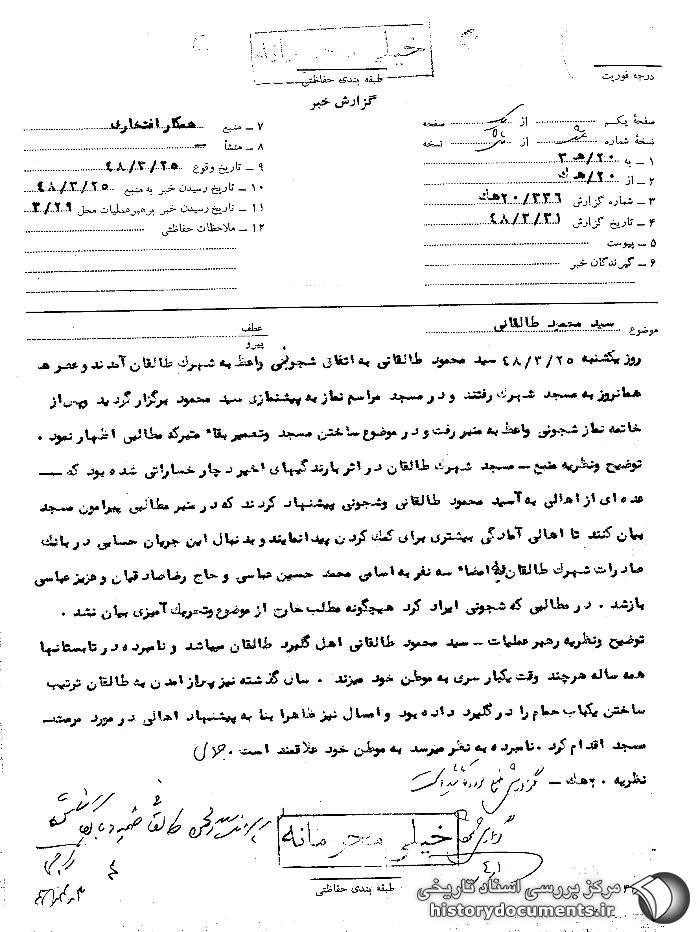 خیلی محرمانه
طبقه بندی حفاظتی
درجه فوریت
گزارش خبر
صفحه یکم از یک صفحه
نسخه شماره از نسخه
۱ ـ به ۲۰/هـ ۳
۲ ـ از ۲۰/هـ ك
۳ ـ شماره گزارش ۲۰/۳۳۶هـك
۴ ـ تاریخ گزارش ۴۸/۳/۳۱
۵ ـ پیوست
۶ ـ گیرندگان خبر
۷ ـ منبع همكار افتخاری
۸ ـ منشأ ـ
۹ ـ تاریخ وقوع ۴۸/۳/۲۵
۱۰ ـ تاریخ رسیدن خبر به منبع ۴۸/۳/۲۵
۱۱ ـ تاریخ رسیدن خبر برهبر عملیات محل ۳/۲۹
۱۲ ـ ملاحظات حفاظتی
موضوع سید محمود طالقانی
عطف
پیرو
روز یكشنبه ۴۸/۳/۲۵ سید محمود طالقانی به اتفاق شجونی واعظ به شهرك طالقان آمدند و عصر هـ
همانروز به مسجد شهرك رفتند و در مسجد مراسم نماز به پیشنمازی سید محمود برگزار گردید وپس از
خاتمه نماز شجونی واعظ به منبر رفت و در موضوع ساختن مسجد وتعمیر بقاء متبركه مطالبی اظهار نمود .
توضیح ونظریه منبع ـ مسجد شهرك طالقان در اثر بارندگیهای اخیر دچار خساراتی شده بود كه ـــ
عده ای از اهالی به آسید محمود طالقانی وشجونی پیشنهاد كردند كه در منبر مطالبی پیرامون مسجد
بیان كنند تا اهالی آمادگی بیشتری برای كمك كردن پیدا نمایند و بدنبال این جریان حسابی در بانك
صادرات شهرك طالقان امضاء سه نفر به اسامی محمد حسین عباسی و حاج رضا صادقیان و عزیز عباسی
بازشد . در مطالبی كه شجونی ایراد كرد هیچگونه مطلب خارج از موضوع وتحریك آمیزی بیان نشد .
توضیح ونظریه رهبر عملیات ـ سید محمود طالقانی اهل گلیرد طالقان میباشد و نامبرده در تابستانها
همه ساله هرچند وقت یكبار سری به موطن خود میزند . سال گذشته نیز پس از آمدن به طالقان ترتیب
ساختن یكباب حمام را در گلیرد داده بود و امسال نیز ظاهرا بنا به پیشنهاد اهالی در مورد مرمتـ
مسجد اقدام كرد . نامبرده به نظر میرسد به موطن خود علاقمند است . جلالی
نظریه ۲۰هـك ـ گزارش
خیلی محرمانه
طبقه بندی حفاظتی
مركز بررسی اسناد تاریخی
historydocuments.ir